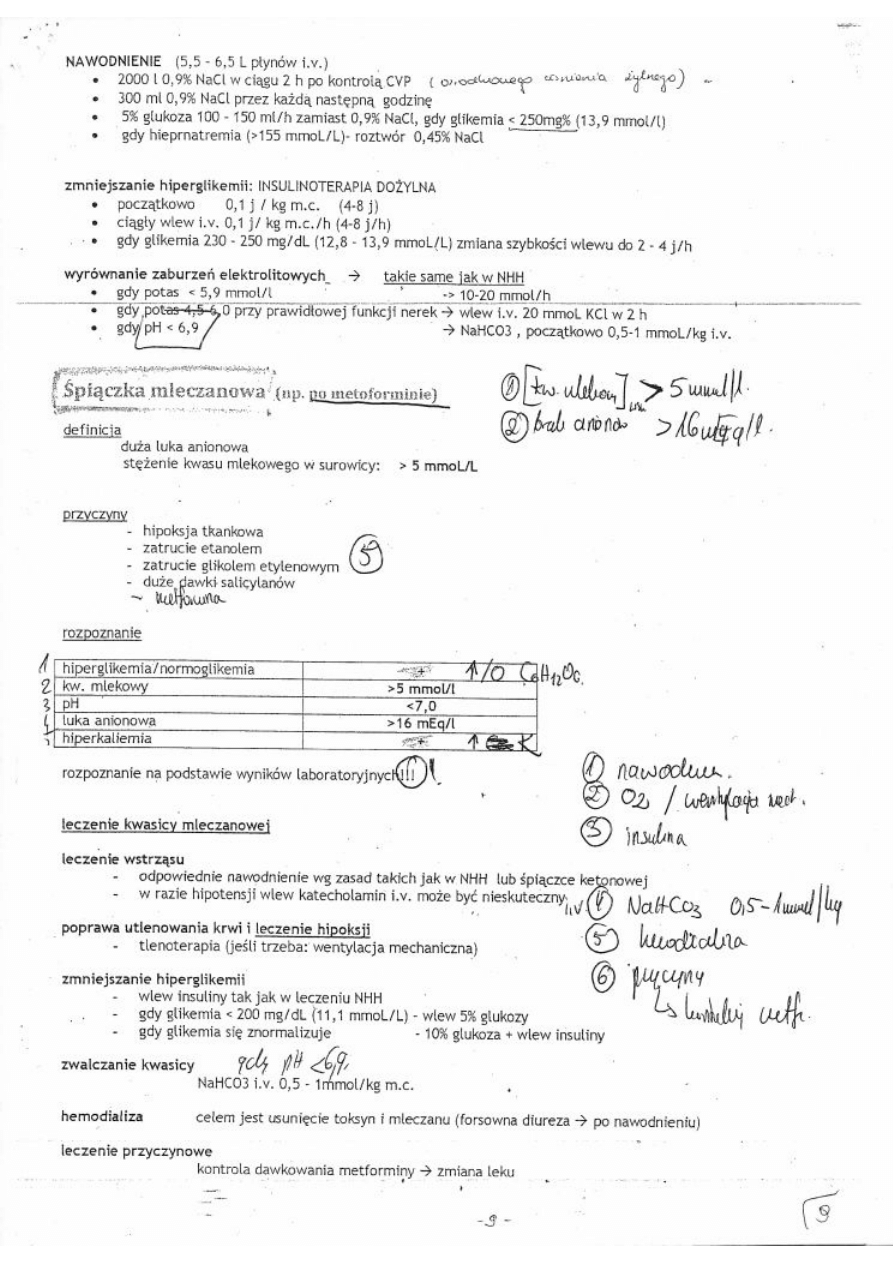 NAWODNIENIE (5,5 - 6,5 L płynów i.v.)
• 2000 l 0,9% NaCl w ciągu 2 h po kontrolą CVP ( ośrodkowego ciśnienia żylnego)
• 300 ml 0,9% NaCl przez każdą następną godzinę
• 5% glukoza 100 - 150 ml/h zamiast 0,9% NaCl, gdy glikemia < 250mg% (13,9 mmol/l)
• gdy hieprnatremia (>155 mmoL/L)- roztwór 0,45% NaCl
zmniejszanie hiperglikemii: INSULINOTERAPIA DOŻYLNA
• początkowo 0,1 j / kg m.c. (4-8 j)
• ciągły wlew i.v. 0,1 j/ kg m.c./h (4-8 j/h)
• gdy glikemia 230 - 250 mg/dL (12,8 - 13,9 mmoL/L) zmiana szybkości wlewu do 2 - 4 j/h
wyrównanie zaburzeń elektrolitowych → takie same jak w NHH
• gdy potas < 5,9 mmol/l -> 10-20 mmol/h
• gdy potas 4,5-6,0 przy prawidłowej funkcji nerek → wlew i.v. 20 mmoL KCl w 2 h
• gdy pH < 6,9 → NaHCO3 , początkowo 0,5-1 mmoL/kg i.v.
Śpiączka mleczanowa (np. po metoforminie)
① [kw. mlekowy] > 5 mmol/l.
② brak anionów > 16 mEq/l.
definicja
duża luka anionowa
stężenie kwasu mlekowego w surowicy: > 5 mmoL/L
przyczyny
- hipoksja tkankowa
- zatrucie etanolem
- zatrucie glikolem etylenowym ⑤
- duże dawki salicylanów
- metformina
rozpoznanie
1 hiperglikemia/normoglikemia + ↑/O C6H12O6.
2 kw. mlekowy >5 mmol/l
3 pH <7,0
4 luka anionowa >16 mEq/l
5 hiperkaliemia + ↑ K
rozpoznanie na podstawie wyników laboratoryjnych!!! !
① nawodnien.
② O2 / wentylacja mech.
③ insulina
leczenie kwasicy mleczanowej
leczenie wstrząsu
- odpowiednie nawodnienie wg zasad takich jak w NHH lub śpiączce ketonowej
- w razie hipotensji wlew katecholamin i.v. może być nieskuteczny
i.v. ④ NaHCO3 0,5-1mmol/kg
poprawa utlenowania krwi i leczenie hipoksji
- tlenoterapia (jeśli trzeba: wentylacja mechaniczna)
⑤ hemodializa
zmniejszanie hiperglikemii
⑥ przyczyny
- wlew insuliny tak jak w leczeniu NHH
- gdy glikemia < 200 mg/dL (11,1 mmoL/L) - wlew 5% glukozy
↳ metf.
- gdy glikemia się znormalizuje - 10% glukoza + wlew insuliny
zwalczanie kwasicy gdy pH <6,9
NaHCO3 i.v. 0,5 - 1mmol/kg m.c.
hemodializa celem jest usunięcie toksyn i mleczanu (forsowna diureza → po nawodnieniu)
leczenie przyczynowe
kontrola dawkowania metforminy → zmiana leku
-9-
9